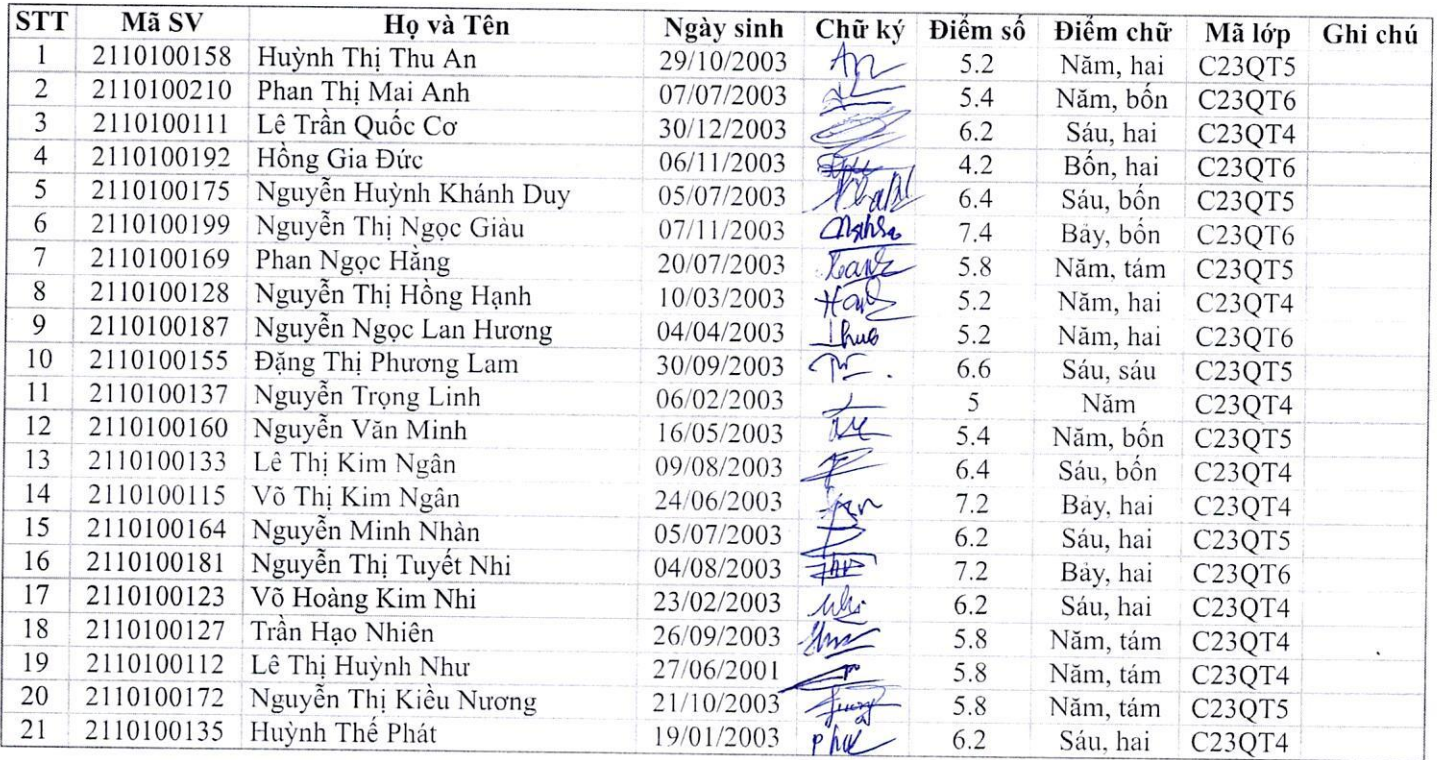 STT Mã SV Họ và Tên Ngày sinh Chữ ký Điểm số Điểm chữ Mã lớp Ghi chú
1 2110100158 Huỳnh Thị Thu An 29/10/2003 An 5.2 Năm, hai C23QT5
2 2110100210 Phan Thị Mai Anh 07/07/2003 5.4 Năm, bốn C23QT6
3 2110100111 Lê Trần Quốc Cơ 30/12/2003 6.2 Sáu, hai C23QT4
4 2110100192 Hồng Gia Đức 06/11/2003 4.2 Bốn, hai C23QT6
5 2110100175 Nguyễn Huỳnh Khánh Duy 05/07/2003 6.4 Sáu, bốn C23QT5
6 2110100199 Nguyễn Thị Ngọc Giàu 07/11/2003 7.4 Bảy, bốn C23QT6
7 2110100169 Phan Ngọc Hằng 20/07/2003 5.8 Năm, tám C23QT5
8 2110100128 Nguyễn Thị Hồng Hạnh 10/03/2003 5.2 Năm, hai C23QT4
9 2110100187 Nguyễn Ngọc Lan Hương 04/04/2003 5.2 Năm, hai C23QT6
10 2110100155 Đặng Thị Phương Lam 30/09/2003 6.6 Sáu, sáu C23QT5
11 2110100137 Nguyễn Trọng Linh 06/02/2003 5 Năm C23QT4
12 2110100160 Nguyễn Văn Minh 16/05/2003 5.4 Năm, bốn C23QT5
13 2110100133 Lê Thị Kim Ngân 09/08/2003 6.4 Sáu, bốn C23QT4
14 2110100115 Võ Thị Kim Ngân 24/06/2003 7.2 Bảy, hai C23QT4
15 2110100164 Nguyễn Minh Nhàn 05/07/2003 6.2 Sáu, hai C23QT5
16 2110100181 Nguyễn Thị Tuyết Nhi 04/08/2003 7.2 Bảy, hai C23QT6
17 2110100123 Võ Hoàng Kim Nhi 23/02/2003 Nhi 6.2 Sáu, hai C23QT4
18 2110100127 Trần Hạo Nhiên 26/09/2003 5.8 Năm, tám C23QT4
19 2110100112 Lê Thị Huỳnh Như 27/06/2001 5.8 Năm, tám C23QT4
20 2110100172 Nguyễn Thị Kiều Nương 21/10/2003 5.8 Năm, tám C23QT5
21 2110100135 Huỳnh Thế Phát 19/01/2003 6.2 Sáu, hai C23QT4